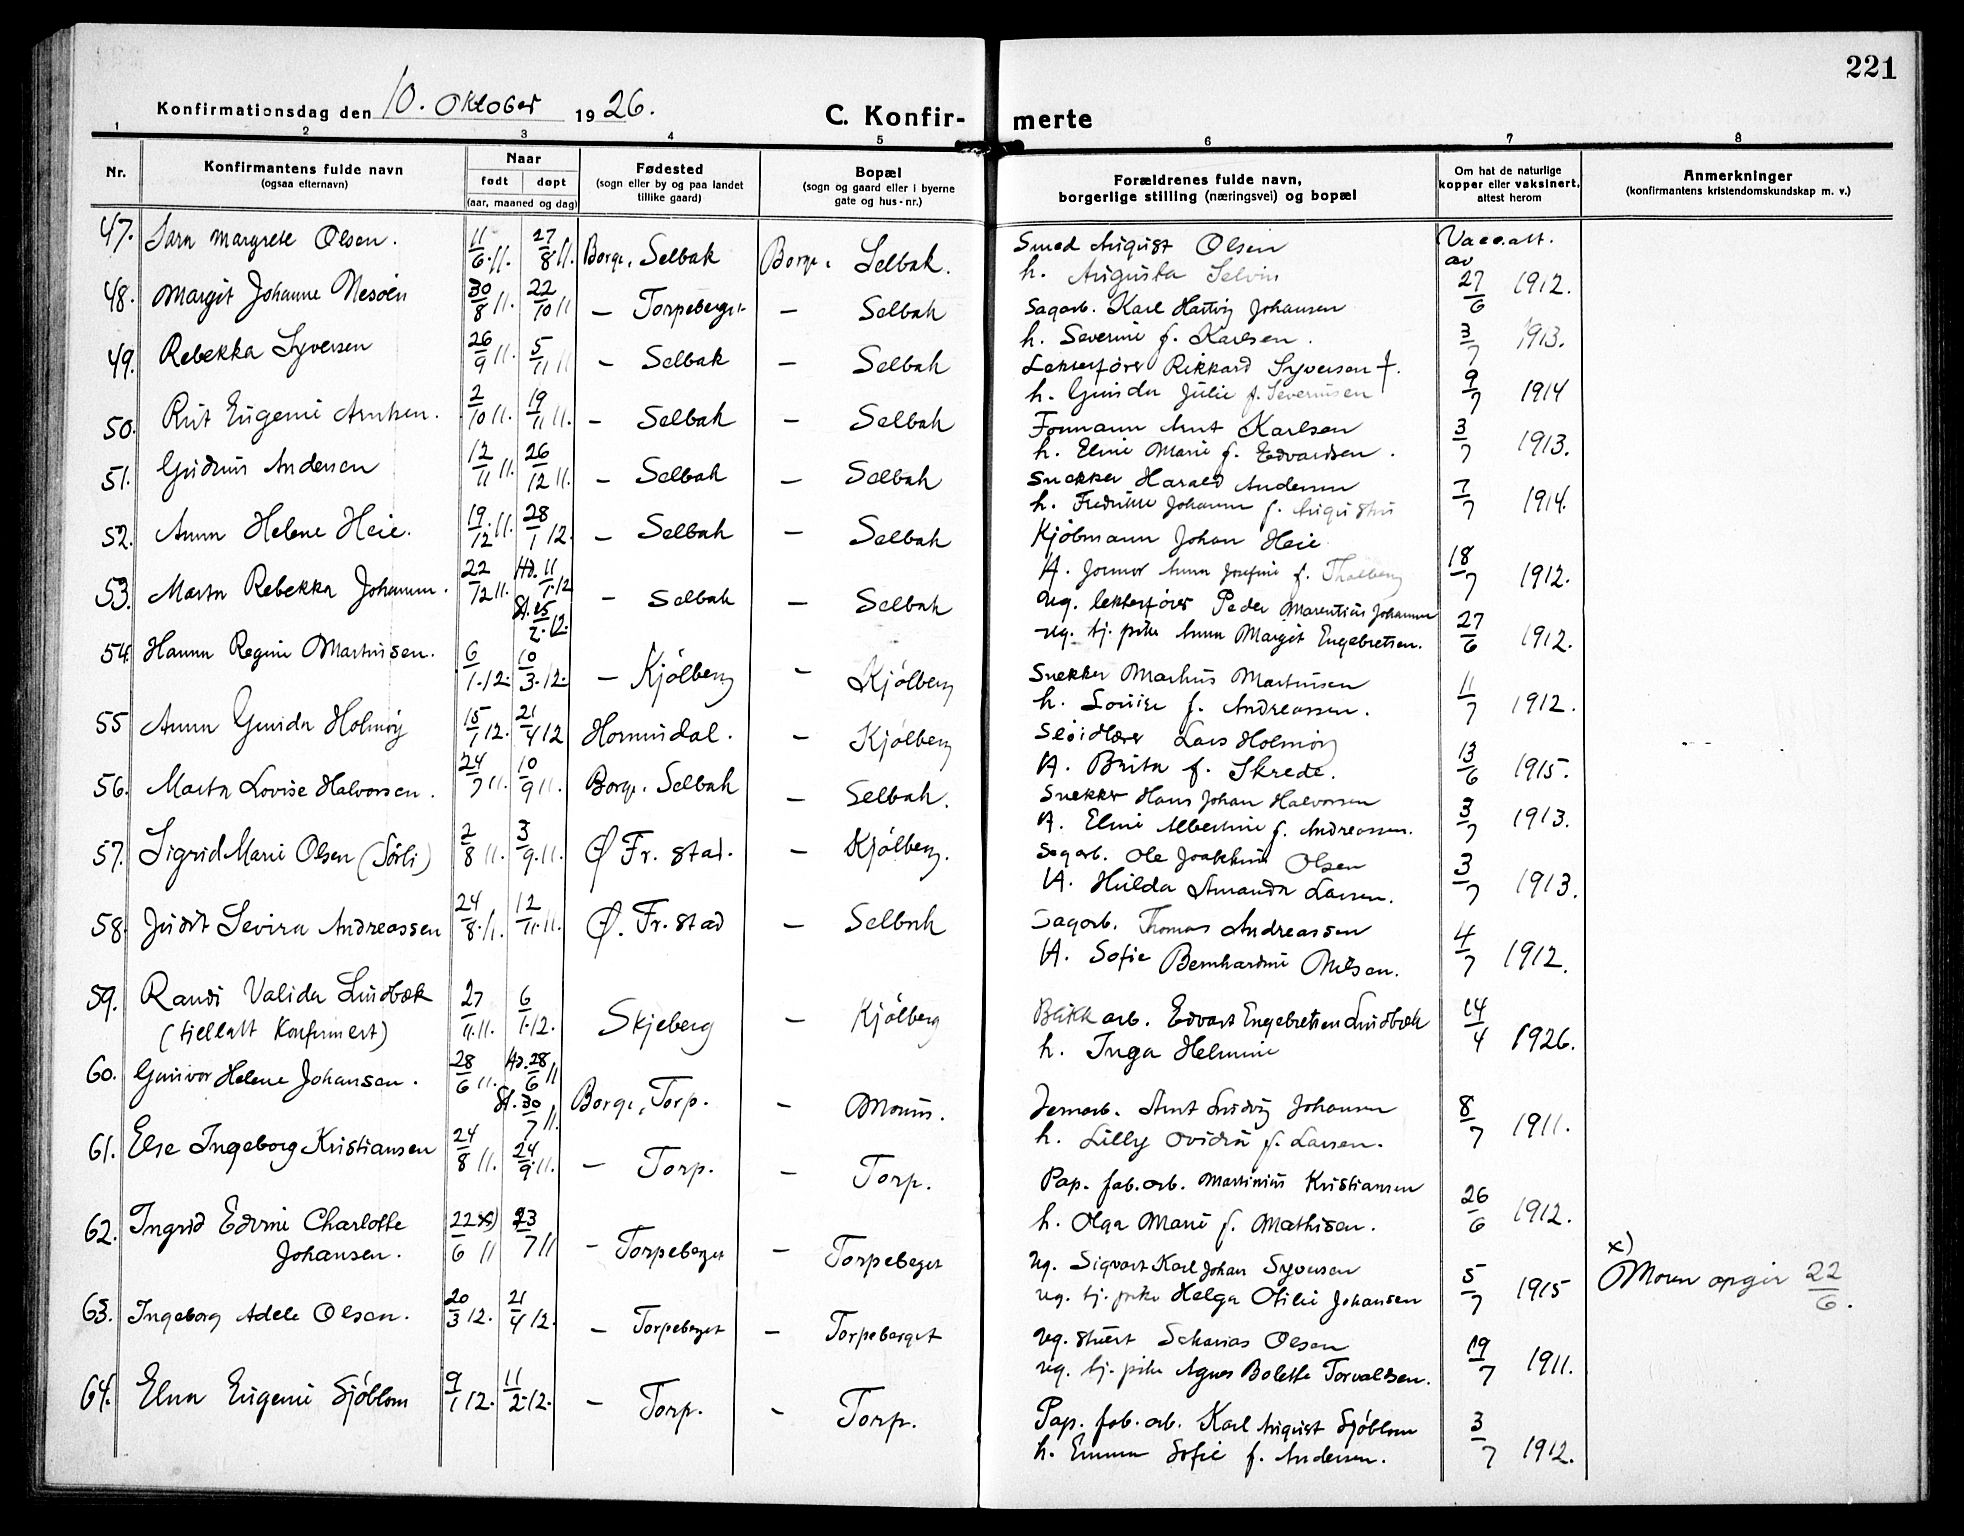 221
Konfirmationsdag den 10. Oktober 1926.
C. Konfir-merte
1 2 3 4 5 6 7 8
Nr.
Konfirmantens fulde navn
(ogsaa efternavn)
Naar
født døpt
(aar, maaned og dag)
Fødested
(sogn eller by og paa landet
tillike gaard)
Bopæl
(sogn og gaard eller i byerne
gate og hus-nr.)
Forældrenes fulde navn,
borgerlige stilling (næringsvei) og bopæl
Om hat de naturlige
kopper eller vaksinert,
attest herom
Anmerkninger
(konfirmantens kristendomskundskap m. v.)
47. Sara Margrete Olsen. 11/6.11. 27/8 11. Borge, Selbak Borge, Selbak.
Smed August Olsen
h. Augusta
Vacc.att. av 27/6 1912.
48. Margit Johanne Nesøen 30/8 11. 22/10 11 – Torpeberget – Selbak
Sagarb. Karl Hartvig Johansen
h. Severine f. Karlsen.
3/7 1913.
49. Rebekka Syversen 26/9 11. 5/11 11 – Selbak – Selbak
Lekterfører Rikkard Syversen †.
h. Gunda Julie f. Severinsen
9/7 1914
50. Rut Eugenie Arntsen. 2/10 11. 19/11 11. – Selbak – Selbak
Formann Arnt Karlsen
h. Eline Marie f. Edvardsen.
3/7 1913.
51. Gudrun Andersen 12/11 11. 26/12 11. – Selbak – Selbak
Snekker Harald Andersen
h. Fredrikke Johanne f.
7/7 1914.
52. Anna Helene Heie. 19/12.11. 28/1 12. – Selbak – Selbak
Kjøbmann Johan Heie
h. Anna Josefine f. Thalberg
18/7 1912.
53. Marta Rebekka Johannes. 22/12 11. Hd. 11/1 12 St. 25/2.12. – Selbak – Selbak
Ug. lekterfører Peder Marentius Johannes
ug. tj. pike Anna Margit Engebretsen.
27/6 1912.
54. Hanna Regine Martinsen. 6/1.12. 10/3.12. – Kjølberg – Kjølberg
Snekker Markus Martinsen
h. Louise f. Andreassen.
11/7 1912.
55 Anna Gunda Holmøy 15/1 12. 21/4 12 Hornindal. – Kjølberg
Sløidlærer Lars Holmøy
h. Brita f. Skrede.
13/6 1915.
56. Marta Lovise Halvorsen. 24/7 11. 10/9 11. Borge, Selbak – Selbak.
Snekker Hans Johan Halvorsen
h. Eline Albertine f. Andreassen.
3/7 1913.
57. Sigrid Marie Olsen (Sørli) 2/8 11. 3/9.11. Ø Fr.stad. – Kjølberg.
Sagarb. Ole Joakkim Olsen
h. Hulda Amanda Larsen.
3/7 1913.
58. Judit Sevira Andreassen 24/8.11. 12/11.11. Ø. Fr.stad – Selbak
Sagarb. Thomas Andreassen
h. Sofie Bernhardine Nilsen.
4/7 1912.
59. Randi Valida Lundbæk 27/11.11. 6/1.12. Skjeberg – Kjølberg
(tiellatt Konfirmert)
Blikkarb. Edvart Engebretsen Lundbæk
h. Inga Helmine
14/4 1926.
60. Gunvor Helene Johansen. 28/6 11. Hd. 28/6 11 St. 30/7 11. Borge, Torp. – Moum.
Jernarb. Arnt Ludvig Johansen
h. Lilly Ovidia f. Larsen.
8/7 1911.
61. Else Ingeborg Kristiansen 24/8 11. 24/9.11. – Torp. – Torp.
Pap. fab. arb. Martinius Kristiansen
h. Olga Marie f. Mathisen.
26/6 1912.
62. Ingrid Edvine Charlotte 22 x)/6 11 23/7 11 – Torpeberget – Torpebeget
Johansen.
Ug. Sigvart Karl Johan Syversen
ug. tj. pike Helga Otilie Johansen
5/7 1915
x) Moren opgir 22/6.
63. Ingeborg Adele Olsen. 20/3 12. 21/4 12. – Torpeberget – Torpeberget
Ug. stuert Sakarias Olsen
ug. tj. pike Agnes Bolette Torvaldsen.
19/7 1911.
64. Elna Eugenie Sjøblom 9/1 12. 11/2.12. – Torp. – Torp.
Pap. fab. arb. Karl August Sjøblom
h. Emma Sofie f. Andersen.
3/7 1912.